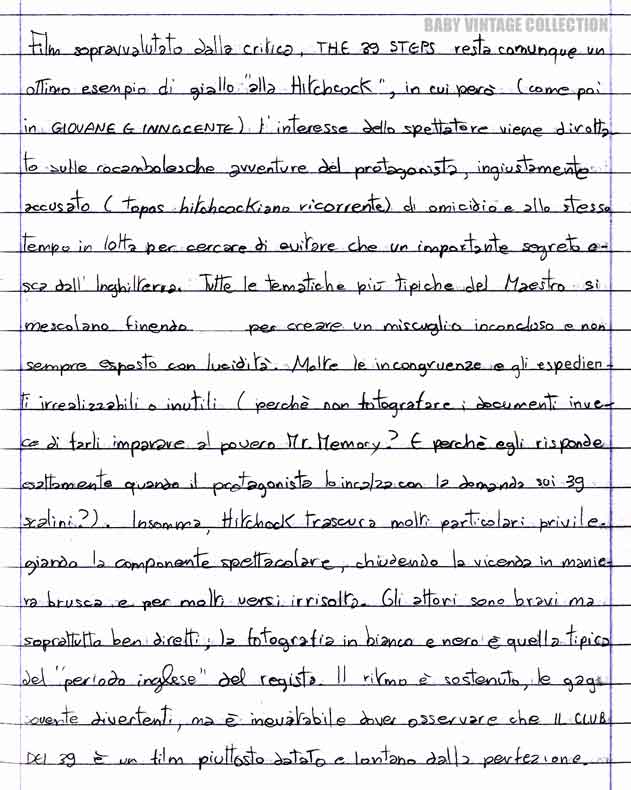 BABY VINTAGE COLLECTION
Film sopravvalutato dalla critica, THE 39 STEPS resta comunque un
ottimo esempio di giallo "alla Hitchcock", in cui però (come poi
in GIOVANE E INNOCENTE) l'interesse dello spettatore viene dirotta
to sulle rocambolesche avventure del protagonista, ingiustamente
accusato (topos hitchcockiano ricorrente) di omicidio e allo stesso
tempo in lotta per cercare di evitare che un importante segreto e-
sca dall'Inghilterra. Tutte le tematiche più tipiche del Maestro si
mescolano finendo per creare un miscuglio inconcluso e non
sempre esposto con lucidità. Molte le incongruenze e gli espedien-
ti irrealizzabili o inutili (perchè non fotografare i documenti inve-
ce di farli imparare al povero Mr. Memory? E perchè egli risponde
esattamente quando il protagonista lo incalza con la domanda sui 39
scalini?). Insomma, Hitchcock trascura molti particolari privile-
giando la componente spettacolare, chiudendo la vicenda in manie-
ra brusca e per molti versi irrisolta. Gli attori sono bravi ma
soprattutto ben diretti; la fotografia in bianco e nero è quella tipica
del "periodo inglese" del regista. Il ritmo è sostenuto, le gags
sovente divertenti, ma è inevitabile dover osservare che IL CLUB
DEI 39 è un film piuttosto datato e lontano dalla perfezione.